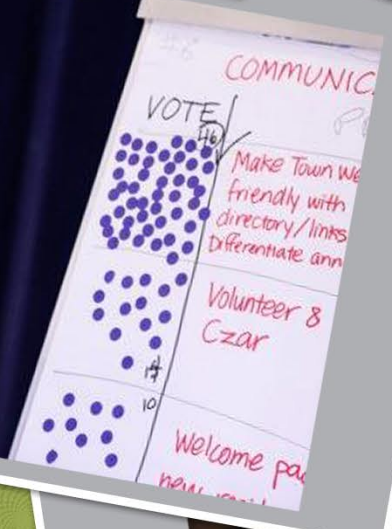 COMMUNIC
VOTE
46
Make Town We
friendly with
directory/links
Differentiate ann
Volunteer &
Czar
10
Welcome pac